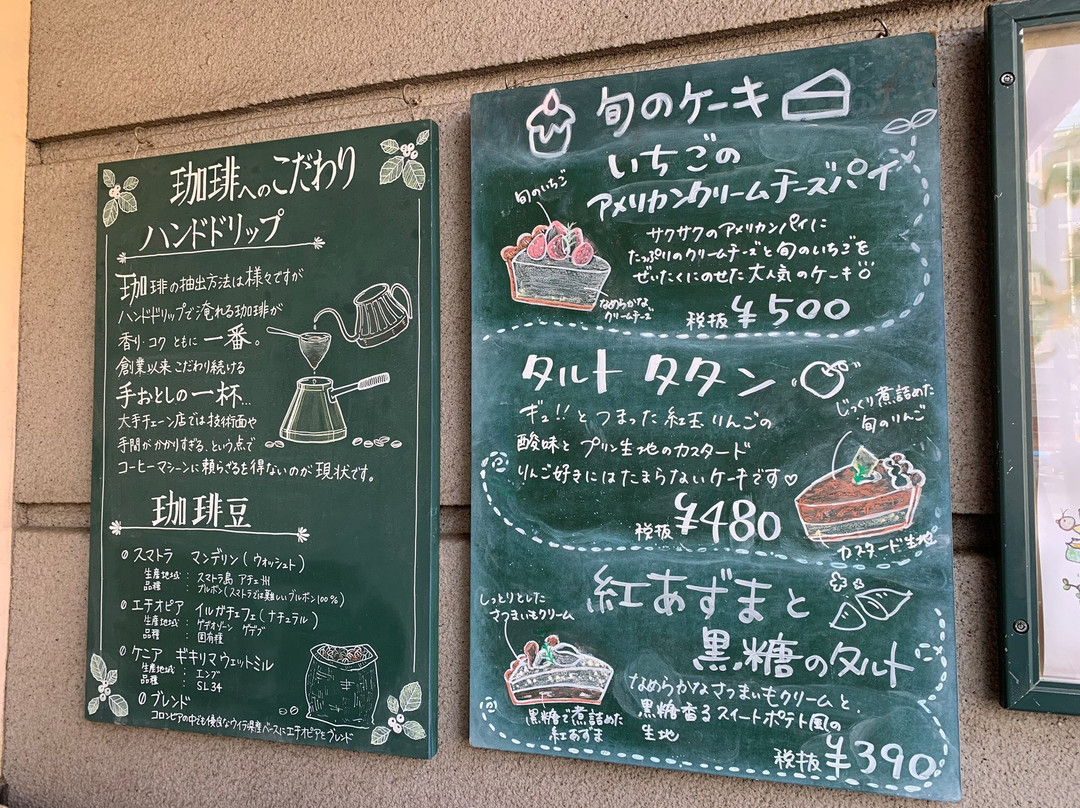 珈琲へのこだわり
ハンドドリップ
珈琲の抽出方法は様々ですが
ハンドドリップで淹れる珈琲が
香り・コク ともに 一番。
創業以来こだわり続ける
手おとしの一杯…
大手チェーン店では技術面や
手間がかかりすぎる、という点で
コーヒーマシーンに頼らざるを得ないのが現状です。
珈琲豆
スマトラ マンデリン(ウォッシュト)
生産地域 : スマトラ島 アチェ州
品種 : ブルボン(スマトラでは難しいブルボン100%)
エチオピア イルガチェフェ(ナチュラル)
生産地域 : ゲデオゾーン ゲデブ
品種 : 固有種
ケニア ギキリマウェットミル
生産地域 : エンブ
品種 : SL34
ブレンド
コロンビアの中でも優良なウイラ県産ベースにエチオピアとブレンド
旬のケーキ
いちごの
アメリカンクリームチーズパイ
旬のいちご
サクサクのアメリカンパイに
たっぷりのクリームチーズと旬のいちごを
ぜいたくにのせた大人気のケーキ
なめらかな
クリームチーズ
税抜 ¥500
タルト タタン
ギュ!!とつまった紅玉りんごの
酸味と プリン生地のカスタード
りんご好きにはたまらないケーキです♡
じっくり煮詰めた
旬のりんご
税抜 ¥480
カスタード生地
紅あずまと
黒糖のタルト
しっとりとした
さつまいもクリーム
なめらかなさつまいもクリームと、
黒糖香るスイートポテト風の
生地
黒糖で煮詰めた
紅あずま
税抜 ¥390